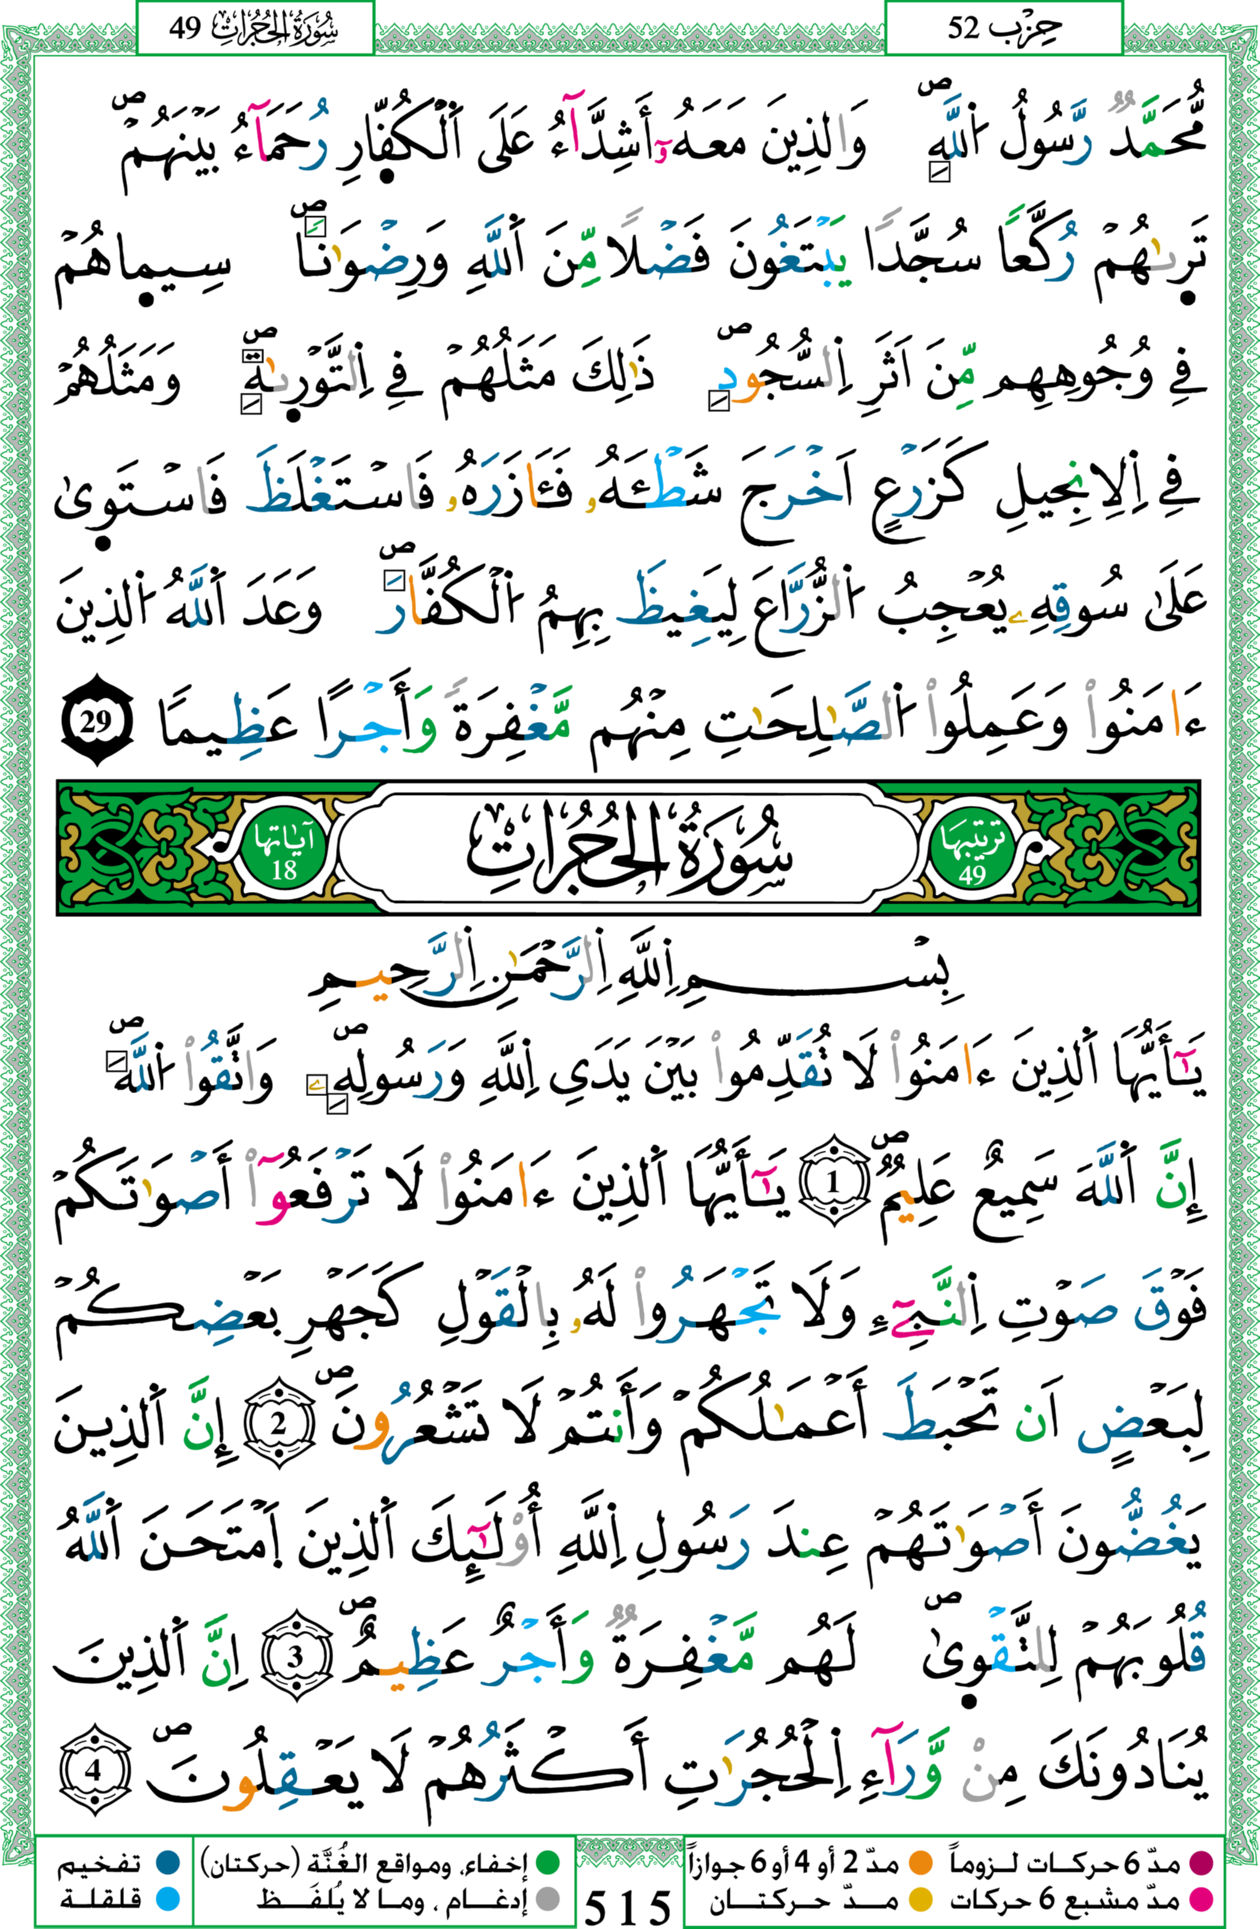 سُورَةُ الحُجُرَاتِ 49
حِزْب 52
مُّحَمَّدٌ رَّسُولُ اُللَّهِ وَالذِينَ مَعَهُۥٓ أَشِدَّآءُ عَلَى اَلْكُفّ۪ارِ رُحَمَآءُ بَيْنَهُمْ
تَر۪ىٰهُمْ رُكَّعاٗ سُجَّداٗ يَبْتَغُونَ فَضْلاٗ مِّنَ اَللَّهِ وَرِضْوَٰناٗ سِيم۪اهُمْ
فِے وُجُوهِهِم مِّنَ اَثَرِ اِلسُّجُودِ ذَٰلِكَ مَثَلُهُمْ فِے اِلتَّوْر۪ىٰةِ وَمَثَلُهُمْ
فِے اِلِانجِيلِ كَزَرْعٍ اَخْرَجَ شَطْـَٔهُۥ فَـَٔازَرَهُۥ فَاسْتَغْلَظَ فَاسْتَو۪ىٰ
عَلَىٰ سُوقِهِۦ يُعْجِبُ اُلزُّرَّاعَ لِيَغِيظَ بِهِمُ اُلْكُفَّارَ وَعَدَ اَللَّهُ اُلذِينَ
ءَامَنُواْ وَعَمِلُواْ اُلصَّٰلِحَٰتِ مِنْهُم مَّغْفِرَةٗ وَأَجْراً عَظِيماٗ 29
تَرتِيبُهَا 49
سُورَةُ الحُجُرَاتِ
آيَاتُهَا 18
بِسْمِ اِللَّهِ اِلرَّحْمَٰنِ اِلرَّحِيمِ
يَـٰٓأَيُّهَا اَلذِينَ ءَامَنُواْ لَا تُقَدِّمُواْ بَيْنَ يَدَيِ اِللَّهِ وَرَسُولِهِۦ وَاتَّقُواْ اُللَّهَ
إِنَّ اَللَّهَ سَمِيعٌ عَلِيمٌ 1 يَـٰٓأَيُّهَا اَلذِينَ ءَامَنُواْ لَا تَرْفَعُوٓاْ أَصْوَٰتَكُمْ
فَوْقَ صَوْتِ اِلنَّبِےٓءِ وَلَا تَجْهَرُواْ لَهُۥ بِالْقَوْلِ كَجَهْرِ بَعْضِكُمْ
لِبَعْضٍ اَن تَحْبَطَ أَعْمَٰلُكُمْ وَأَنتُمْ لَا تَشْعُرُونَ 2 إِنَّ اَلذِينَ
يَغُضُّونَ أَصْوَٰتَهُمْ عِندَ رَسُولِ اِللَّهِ أُوْلَـٰٓئِكَ اَلذِينَ اَمْتَحَنَ اَللَّهُ
قُلُوبَهُمْ لِلتَّقْو۪ىٰ لَهُم مَّغْفِرَةٌ وَأَجْرٌ عَظِيمٌ 3 اِنَّ اَلذِينَ
يُنَادُونَكَ مِنْ وَّرَآءِ اِلْحُجُرَٰتِ أَكْثَرُهُمْ لَا يَعْقِلُونَ 4
مدّ 6 حركات لـزوماً مدّ 2 أو 4 أو 6 جوازاً إخفاء، ومواقع الغُنَّة (حركتان) تفخيم
مدّ مشبع 6 حركات مدّ حركتان 515 إدغام ، وما لا يُلفَظ قلقلة